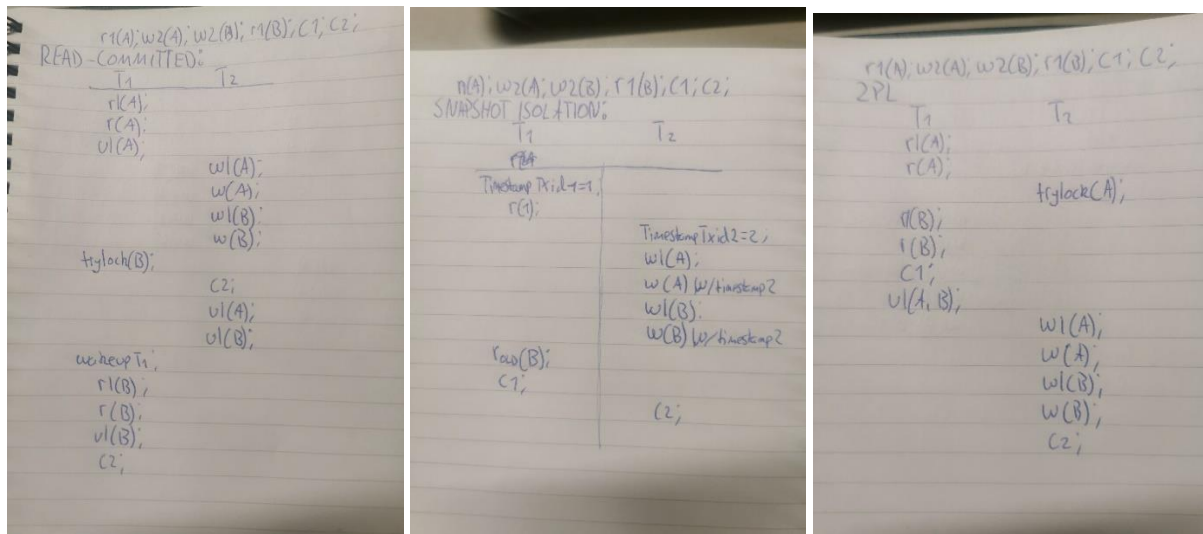 r1(A); w2(A); w2(B); r1(B); C1; C2;
READ-COMMITTED:
T1 T2
rl(A);
r(A);
ul(A);
wl(A);
w(A);
wl(B);
w(B);
trylock(B);
C2;
ul(A);
ul(B);
wakeup T1;
rl(B);
r(B);
ul(B);
C2;
r1(A); w2(A; w2(B); r1(B); C1; C2;
SNAPSHOT ISOLATION:
T1 T2
Timestamp Txid1=1;
r(1);
Timestamp Txid2=2;
wl(A);
w(A) w/timestamp2
wl(B);
w(B) w/timestamp2
(B);
C1;
C2;
r1(A); w2(A); w2(B); r1(B); C1; C2;
2PL
T1 T2
rl(A);
r(A);
trylock(A);
rl(B);
r(B);
C1;
ul(A,B);
wl(A);
w(A);
wl(B);
w(B);
C2;